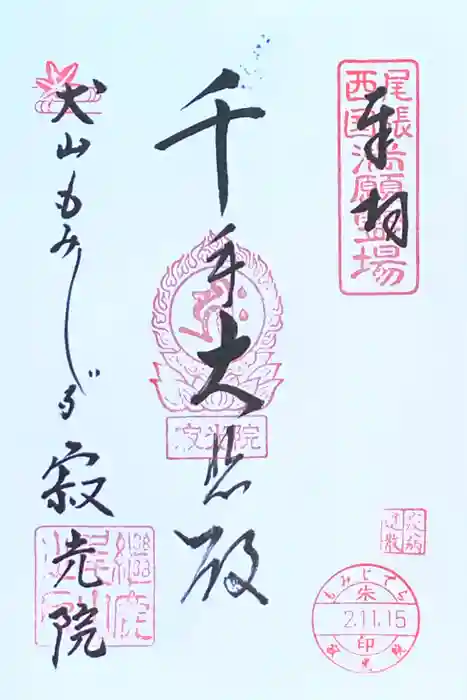 奉拝
尾張
西国
願
場
千手大悲殿
寂光院
犬山もみじでら
寂光院
もみじでら
朱
2.11.15
印